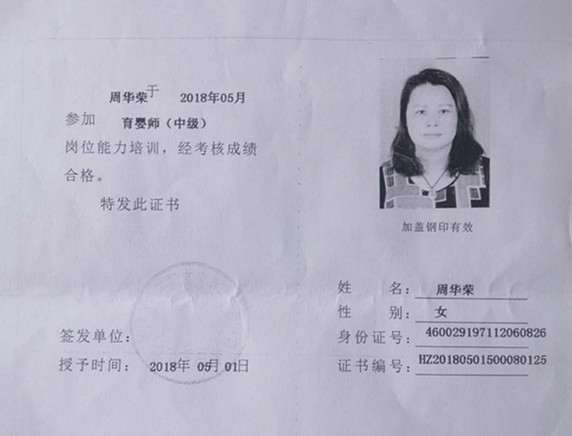 周华荣于 2018年05月
参加 育婴师（中级）
岗位能力培训，经考核成绩
合格。
特发此证书
签发单位：
授予时间： 2018年 05月 01日
加盖钢印有效
姓 名： 周华荣
性 别： 女
身份证号： 460029197112060826
证书编号： HZ20180501500080125